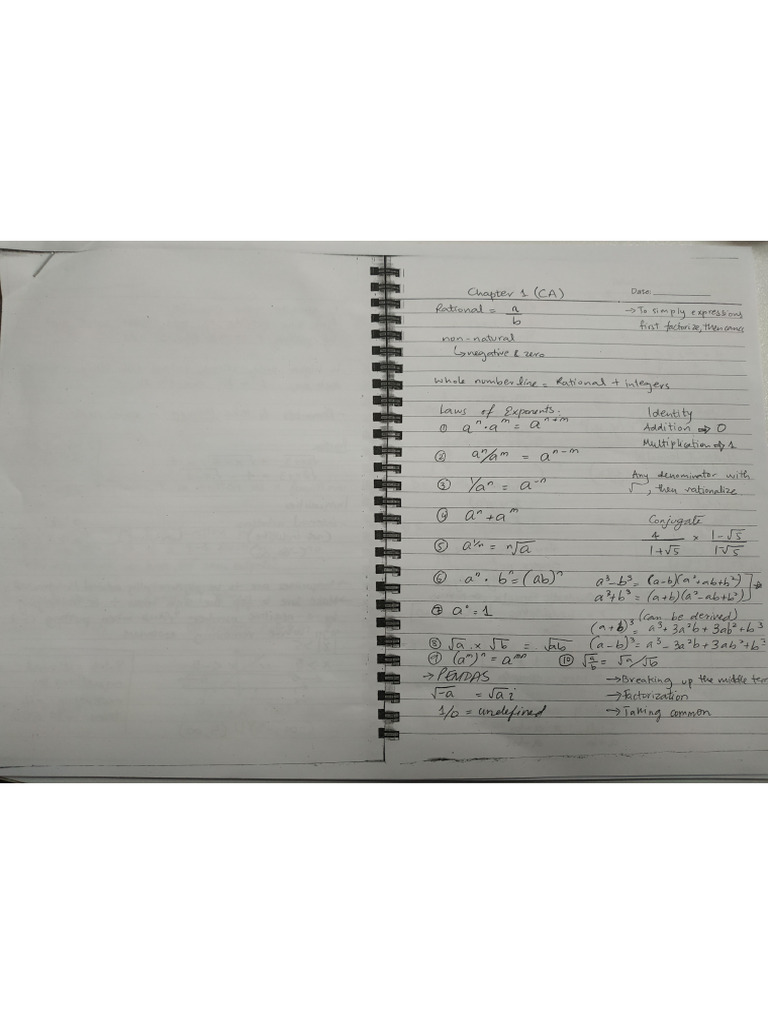 Chapter 1 (CA)
Date:
Rational = a/b
→ To simply expressions
first factorize, then
non-natural
↳ negative & zero
whole number line = Rational + integers
Laws of Exponents:
Identity
① aⁿ · aᵐ = aⁿ⁺ᵐ
Addition ⇒ 0
Multiplication ⇒ 1
② aⁿ/aᵐ = aⁿ⁻ᵐ
③ 1/aⁿ = a⁻ⁿ
Any denominator with
√ , then rationalize
④ aⁿ + aᵐ
Conjugate
4/(1+√5) × (1-√5)/(1√5)
⑤ a^(1/n) = ⁿ√a
⑥ aⁿ · bⁿ = (ab)ⁿ
a³-b³ = (a-b)(a²+ab+b²)
a³+b³ = (a+b)(a²-ab+b²)
⑦ a° = 1
(can be derived)
(a+b)³ = a³+3a²b+3ab²+b³
⑧ √a × √b = √ab
(a-b)³ = a³-3a²b+3ab²+b³
⑨ (aᵐ)ⁿ = aᵐⁿ
⑩ √(a/b) = √a/√b
→ PEMDAS
→ Breaking up the middle term
√-a = √a i
→ Factorization
1/0 = undefined
→ Taking common